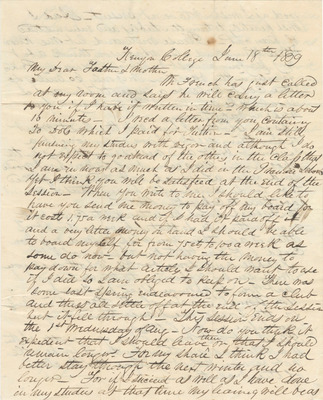 Kenyon College June 18th 1839
My Dear Father & Mother
Mr French has just called
at my room and says he will carry a letter
to you if I have it written in time which is about
15 minutes — I rec'd a letter from you containing
10 Dols which I paid for Tuition — I am still
pursuing my studies with vigor and although I do
not expect to go ahead of the others in the class, yet
I am as much as I did in the
I think you will be satisfied at the end of the
Session — When you write to me I should like to
have you send me money to pay off my board for
it costs 1,75 a week and if I had it paid off
and a very little money in hand I should be able
to board myself for from 75 cts to 1.00 a week as
some do now — but not having the money to
pay down for what articles I should want to use
if I did so I am obliged to keep on — There was
some talk Spring of forming a club
and they are often of that the Session
but it fell through — This Session ends
the 1st Wednesday of Aug — Now do you think it
expedient that I should leave then or that I should
remain longer For my share I think I had
better stay through the next month and no
longer — For if I succeed as well as I have done
in my studies at that time my leaving will be as